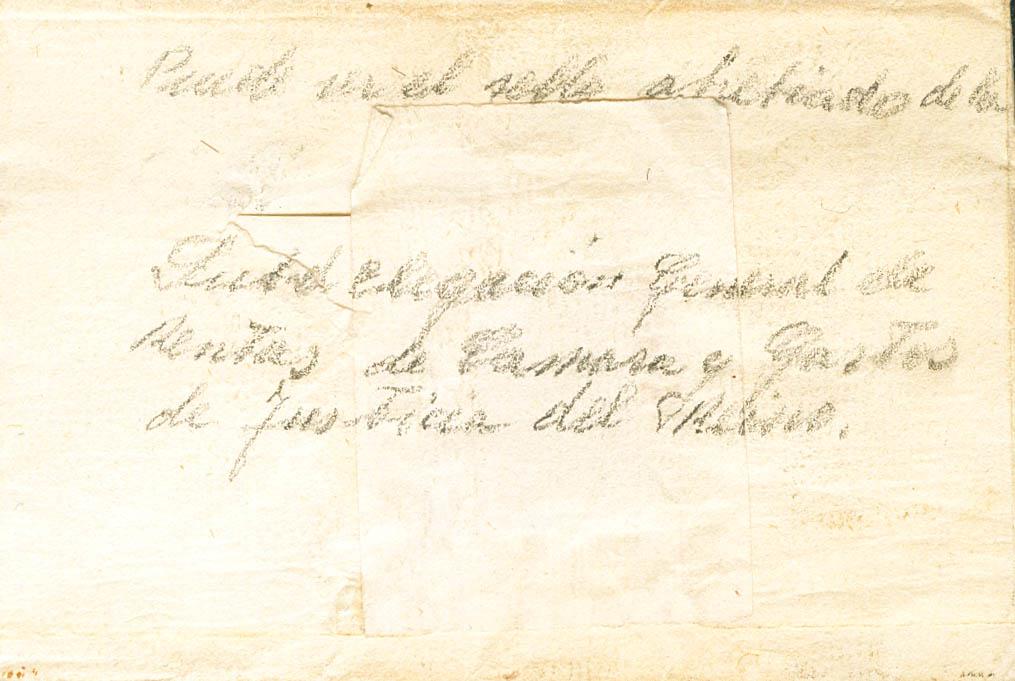 en el sello abreviado de la
Subdelegación General de
Rentas de Camara y Gastos
de Justicia del Reino.